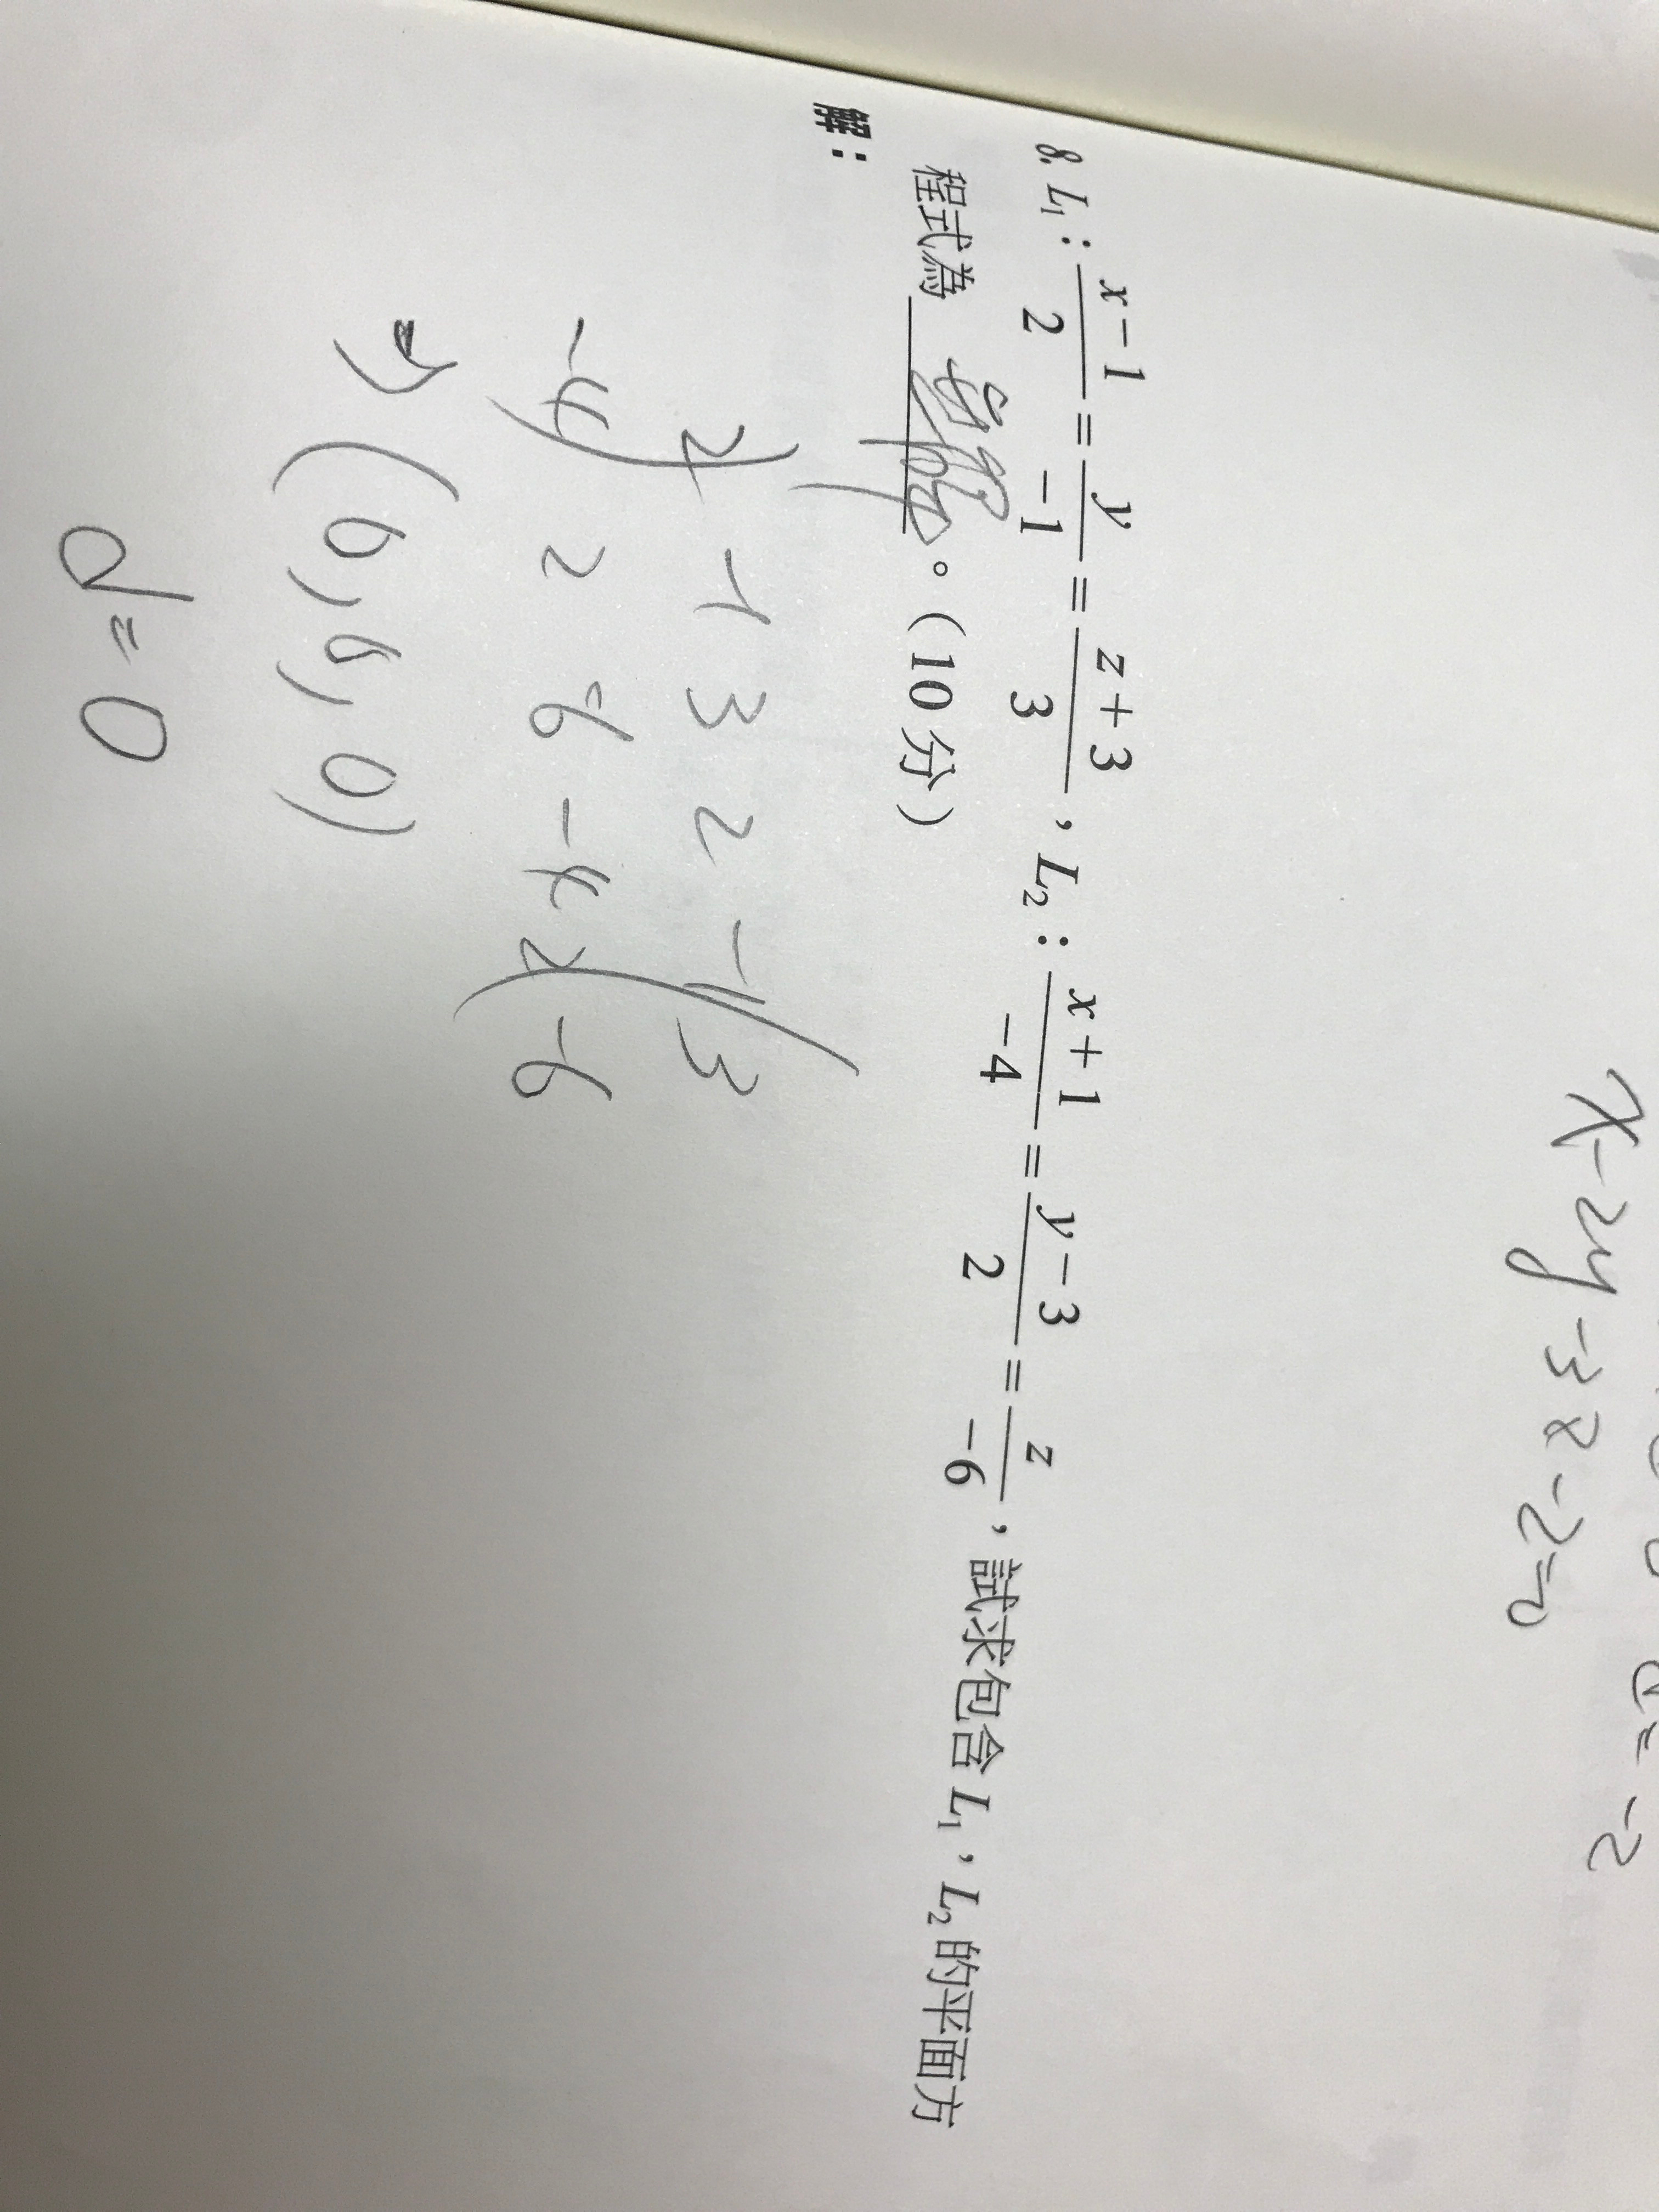 x-2y-3z-2=0
8. L₁：\frac{x-1}{2}=\frac{y}{-1}=\frac{z+3}{3}，L₂：\frac{x+1}{-4}=\frac{y-3}{2}=\frac{z}{-6}，試求包含 L₁，L₂ 的平面方
程式為 。（10分）
解：
2 -1 3 2 -1 3
-4 2 -6 -4 2 -6
⇒ (0,0,0)
d=0